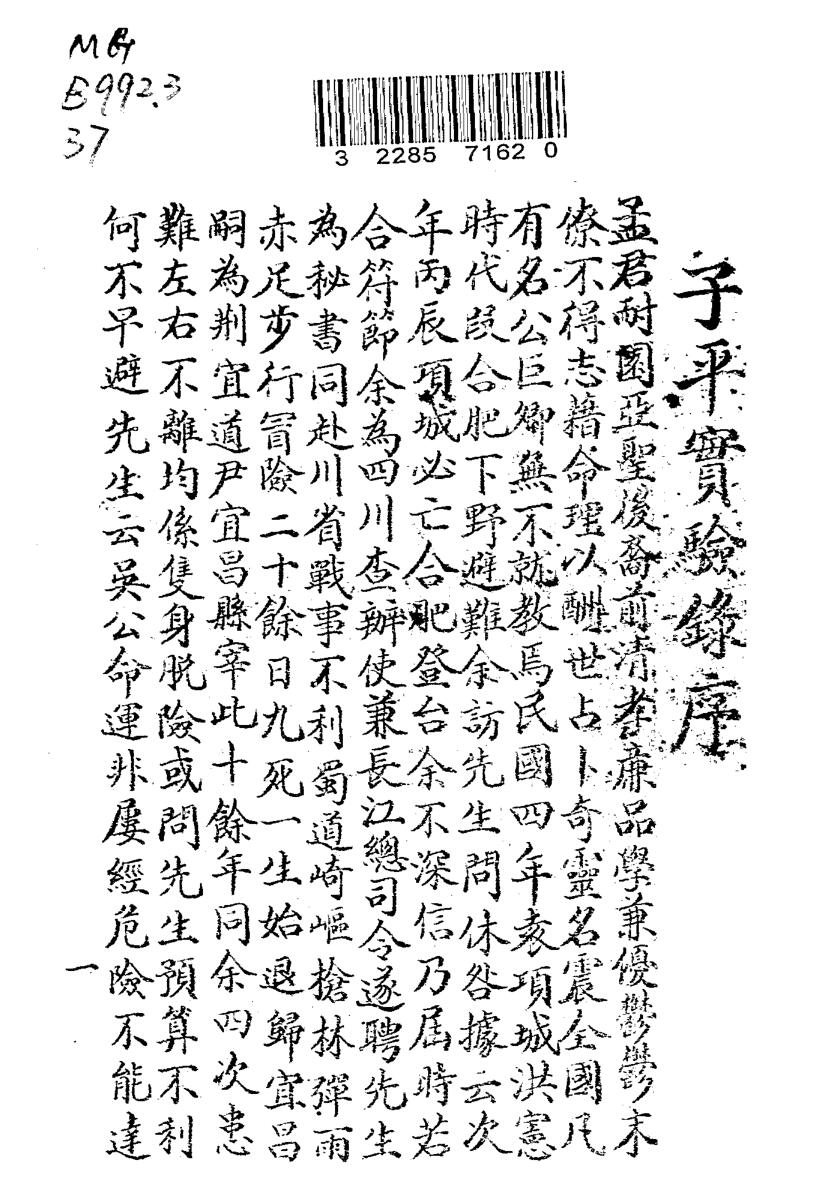 MG
E992.3
37
3 2285 7162 0
子平實驗錄序
孟君耐園亞聖後裔前清孝廉品學兼優鬱鬱末
僚不得志藉命理以酬世占卜奇靈名震全國凡
有名公巨卿無不就教焉民國四年袁項城洪憲
時代段合肥下野避難余訪先生問休咎據云次
年丙辰項城必亡合肥登台余不深信乃屆時若
合符節余為四川查辦使兼長江總司令遂聘先生
為秘書同赴川省戰事不利蜀道崎嶇槍林彈雨
赤足步行冒險二十餘日九死一生始退歸宜昌
嗣為荆宜道尹宜昌縣宰此十餘年同余四次患
難左右不離均係隻身脱險或問先生預算不利
何不早避先生云吳公命運非屢經危險不能達
一